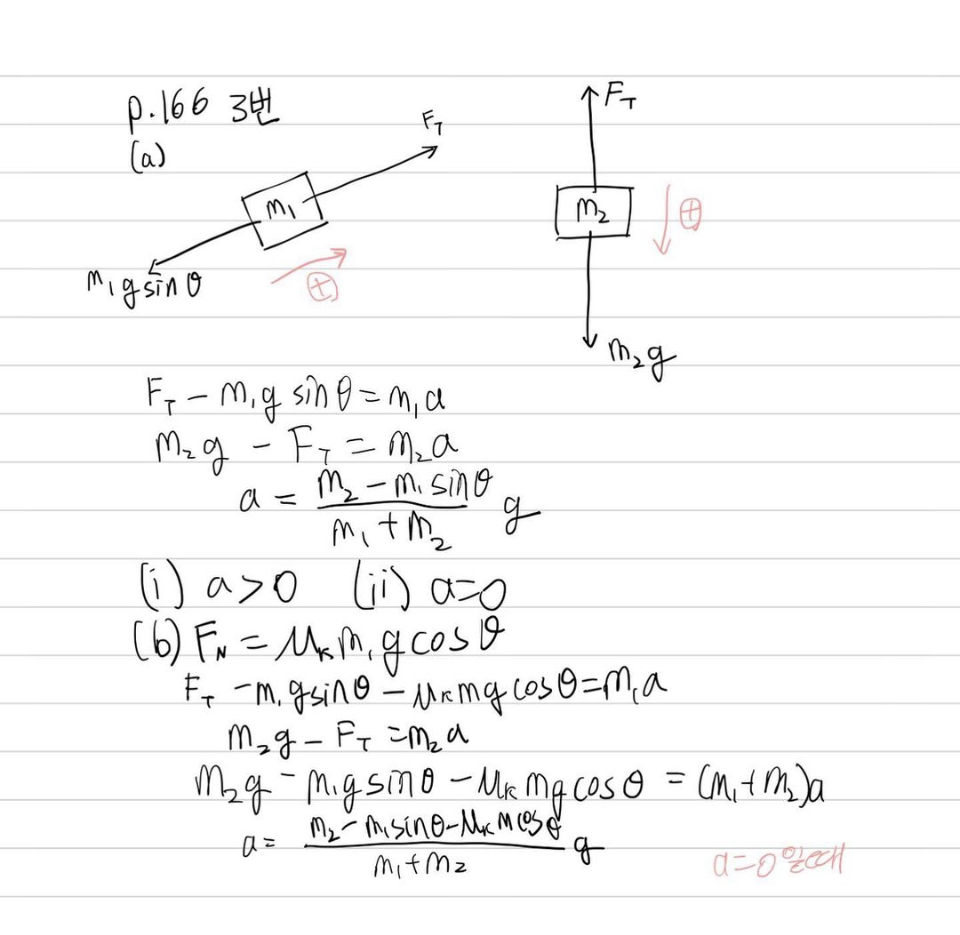 p.166 3번
(a)
F_T
m₁
m₁g sinθ
⊕
F_T
m₂
⊕
m₂g
F_T − m₁g sinθ = m₁a
m₂g − F_T = m₂a
a = (m₂ − m₁ sinθ)/(m₁ + m₂) g
(i) a>0 (ii) a=0
(b) F_N = μ_K m₁g cosθ
F_T − m₁g sinθ − μ_K mg cosθ = m₁a
m₂g − F_T = m₂a
m₂g − m₁g sinθ − μ_K mg cosθ = (m₁+m₂)a
a = (m₂ − m₁ sinθ − μ_K m cosθ)/(m₁+m₂) g
a=0일때